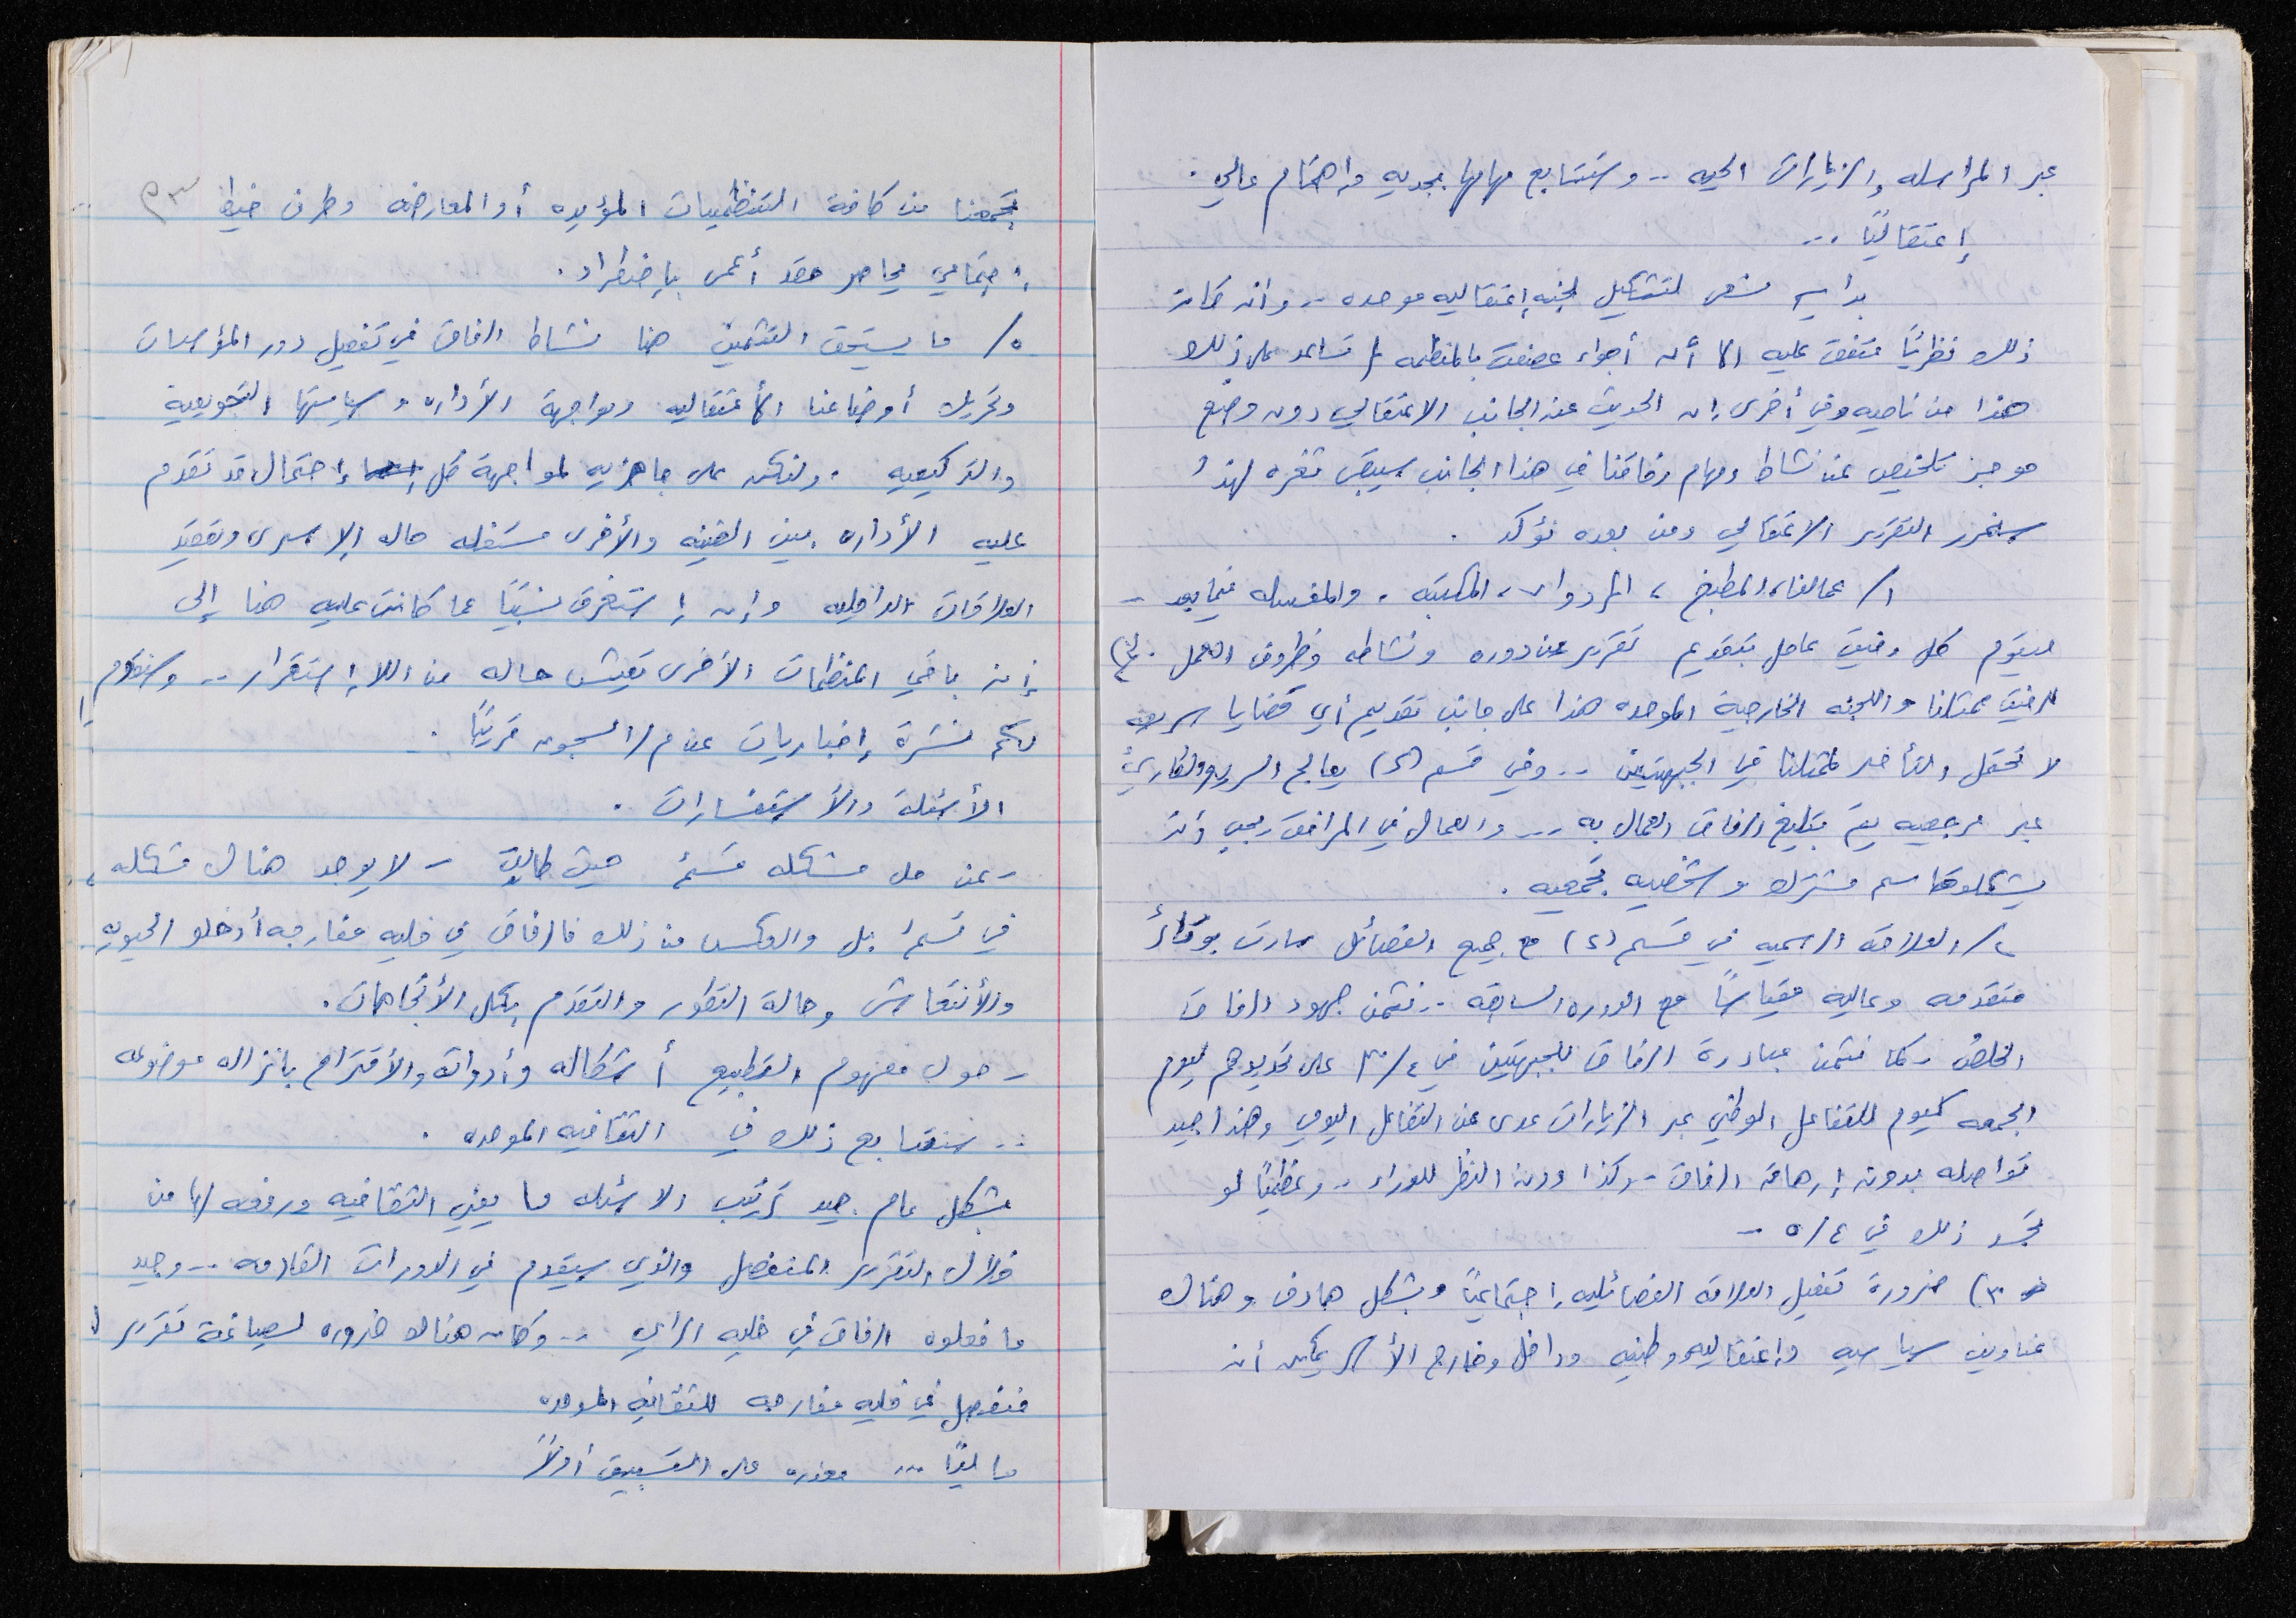 عبر المراسله والزيارات الحيه .. وستتابع مهامها بجديه واهتمام عالي .
إعتقاليًا ...
بدايه نسعى لتشكيل لجنه إعتقاليه موحده .. وان كانت
ذلك نظريًا متفق عليه الا أن أجواء عصفت بالمنظمه لم تساعد على ذلك
هذا من ناحيه وفي أخرى إن الحديث عن الجانب الاعتقالي دون وضع
موجز تلخيص عن نشاط ومهام رفاقنا في هذا الجانب سيبقى ثغره لهذا
سنمرر التقرير الاعتقالي ومن بعده نؤكد .
١/ عمالنا، المطبخ ، المردوان، المكتبه . والمغسله فيما بعد -
سيقوم كل رفيق عامل بتقديم تقرير عن دوره ونشاطه وظروف العمل
للرفيق ممثلنا واللجنه الخارجية الموحده هذا على جانب تقديم أي قضايا سريعه
لا تحتمل التأخير لممثلنا في الجبهتين .. وفي قسم (٢) يعالج السريع والطارئ
عبر مرجعيه يتم تبليغ الرفاق العمال به ... والعمال في المرافق يجب وان
يشكلوا قاسم مشترك وشخصيه تجمعيه .
٢/ العلاقه الرسميه في قسم (٢) مع جميع الفصائل سارت بوتائر
متقدمه وعاليه مقياسًا مع الدوره السابقه .. نثمن جهود الرفاق
الخلص . كما نثمن مبادرة الرفاق للجبهتين في ٤/٣ على تحديدهم ليوم
الجمعه كيوم للتفاعل الوطني عبر الزيارات عدى عن التفاعل اليومي وهذا جيد
تواصله بدون إرهاق الرفاق - وكذا دون النظر للوراء .. وعظيمًا لو
تجسد ذلك في ٥/٤ -
٣) ضرورة تفعيل العلاقه الفصائليه إجتماعيًا وبشكل هادف وهناك
عناوين سياسيه وإعتقاليه وطنيه وداخل وخارج الأسر يمكن أن
تجمعنا من كافة التنظيمات المؤيده أو المعارضه وطرف خيط
إجتماعي يحاصر حقد أعمى بإضطراد .
٥/ ما يستحق التثمين هنا نشاط الرفاق في تفعيل دور المؤسسات
وتحريك أوضاعنا الأعتقاليه ومواجهة الأداره وسياستها التجويعية
والتركيعيه . ولنكن على جاهزيه لمواجهة كل إحتمال قد تقدم
عليه الأداره بين الفينه والأخرى مستغله حاله الاسرى وتعقيد
العلاقات الداخليه وإن إستغرق نسبيًا عما كانت عليه هنا إلى
إن باقي المنظمات الأخرى تعيش حاله من اللا إستقرار .. وسنقدم
لكم نشرة إخباريات عن م/السجون قريبًا .
الأسئله والأستفسارات .
- عن حل مشكله قسم حيث طالبت - لا يوجد هناك مشكله
في قسم بل والعكس من ذلك فالرفاق في خليه مغارجه أدخلو الحيويه
والأنتعاش وحالة التطور والتقدم بكل الأتجاهات .
- حول مفهوم التطبيع أشكاله وأدواته والأقتراح بانزاله موضوعه
.. سنتابع ذلك في الثقافيه الموحده .
بشكل عام جيد ترتيب الاسئله ما يعني الثقافيه ورفعه لها من
خلال التقرير المنفصل والذي سيقدم في الدورات القادمه .. وجيد
ما فعلوه الرفاق في خليه الراعي .. وكان هنالك ضروره لصياغة تقرير
منفصل في خليه مغارجه للثقافيه الموحده
ماليًا ... معذره على التسبيق أولاً